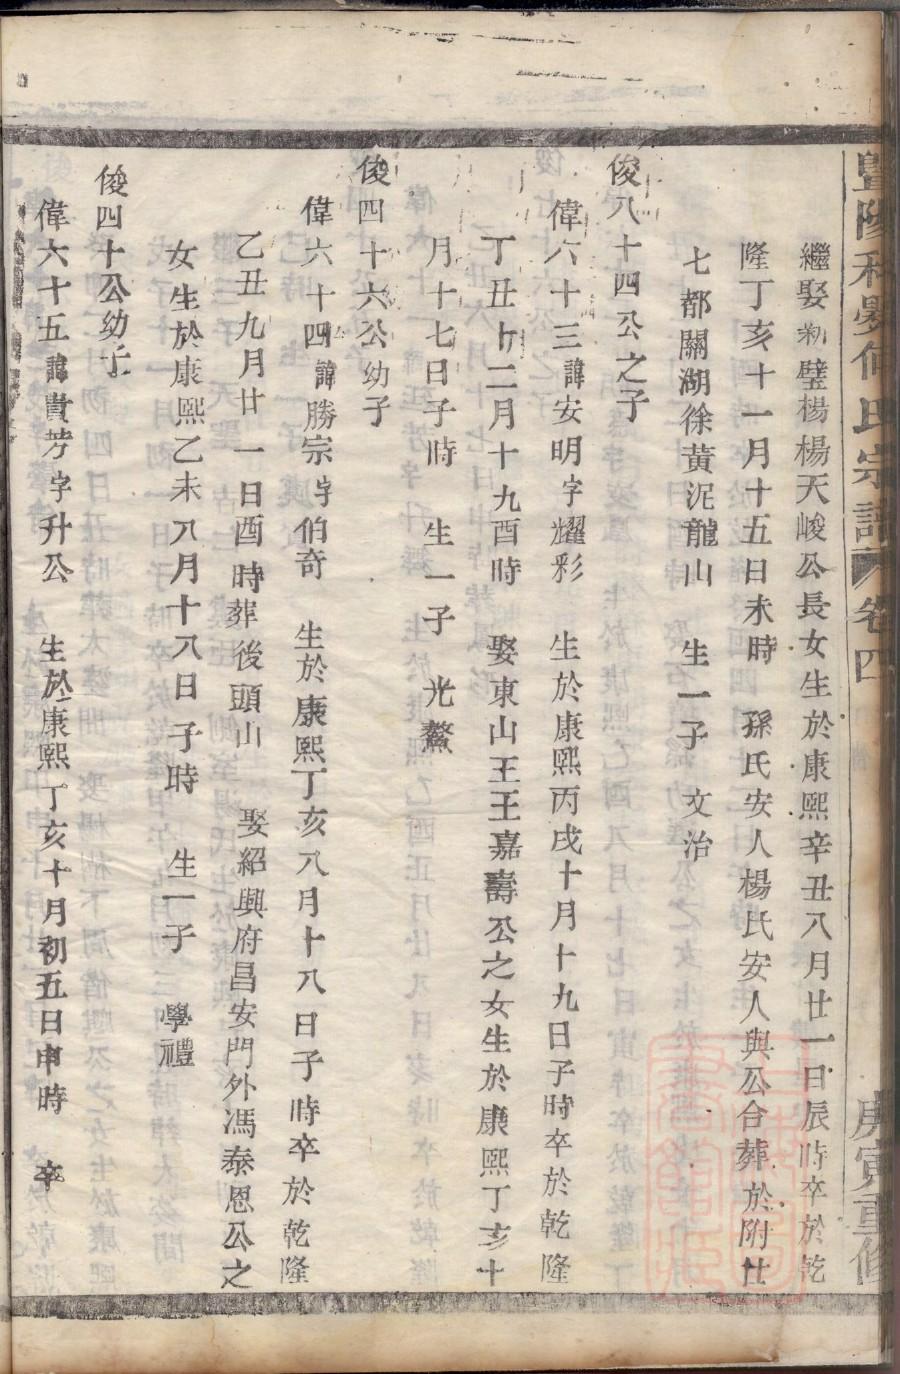 暨陽何氏宗譜 卷四 庚寅重修
繼娶新璧楊楊天峻公長女生於康熙辛丑八月廿一日辰時卒於乾
隆丁亥十一月十五日未時 孫氏安人楊氏安人與公合葬於附廿
七都關湖徐黃泥龍山 生一子 文治
俊八十四公之子
偉六十三諱安明字耀彩 生於康熙丙戌十月十九日子時卒於乾隆
丁丑十二月十九酉時 娶東山王王嘉壽公之女生於康熙丁亥十
月十七日子時 生一子 光鰲
俊四十六公幼子
偉六十四諱勝宗字伯奇 生於康熙丁亥八月十八日子時卒於乾隆
乙丑九月廿一日酉時葬後頭山 娶紹興府昌安門外馮泰恩公之
女生於康熙乙未八月十八日子時 生一子 學禮
俊四十公幼子
偉六十五諱貴芳字升公 生於康熙丁亥十月初五日申時 卒